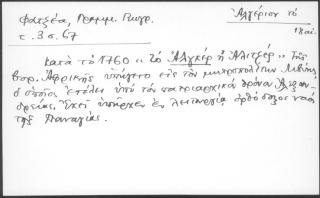 Φατζέα, Γραμμ. Γεωγρ.
τ. 3 σ. 67
Ἀλγέριον τό
18 αἰ.
κατά τό 1760 "τό Ἀλγκέρ ἤ Ἀλιτζέρ" τῆς
βορ. Ἀφρικῆς ὑπήγετο εἰς τόν μητροπολίτην Λιβύης
ὁ ὁποῖος ἐτέλει ὑπό τόν πατριαρχικόν θρόνον Ἀλεξαν-
δρείας. Ἐκεῖ ὑπῆρχεν ἐν λειτουργίᾳ ὀρθόδοξος ναός
τῆς Παναγίας.